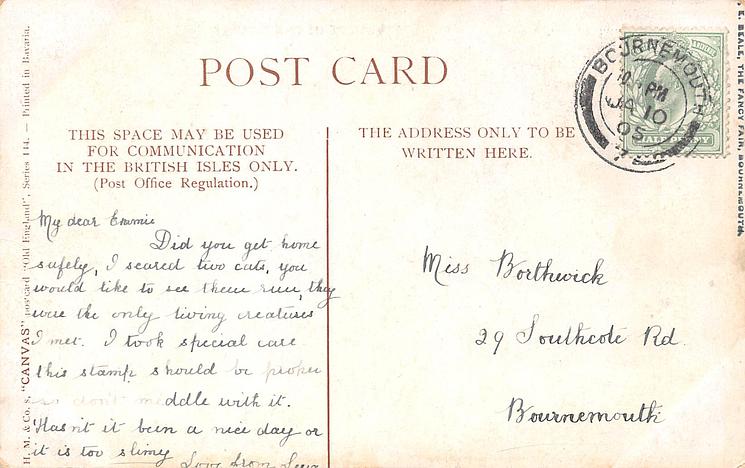 POST CARD
THIS SPACE MAY BE USED
FOR COMMUNICATION
IN THE BRITISH ISLES ONLY.
(Post Office Regulation.)
My dear Emmie
Did you get home
safely, I scared two cats, you
would like to see them run, they
were the only living creatures
I met. I took special care
this stamp should be proper
so don't meddle with it.
Hasn't it been a nice day or
it is too slimy
Love from
THE ADDRESS ONLY TO BE
WRITTEN HERE.
Miss Borthwick
29 Southcote Rd.
Bournemouth
BOURNEMOUTH
PM
JA 10
05
HALFPENNY
H. M. & Co.'s "CANVAS" postcard "Old England", Series 114. — Printed in Bavaria.
E. BEALE, THE FANCY FAIR, BOURNEMOUTH.